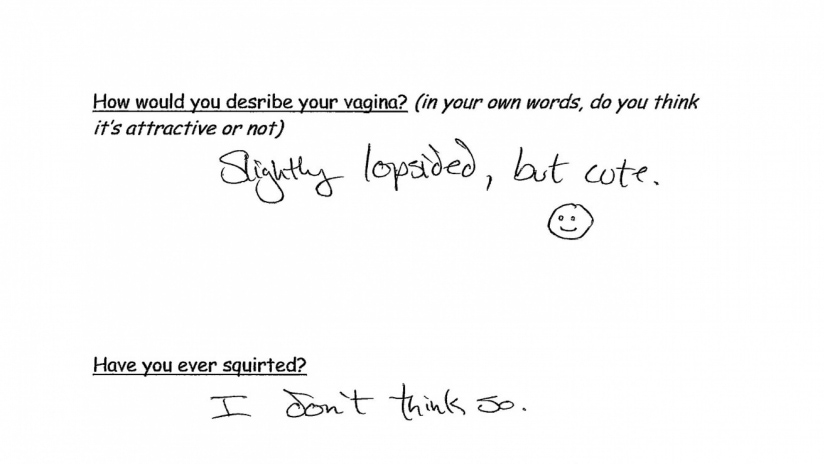 How would you desribe your vagina? (in your own words, do you think
it's attractive or not)
Slightly lopsided, but cute.
Have you ever squirted?
I don't think so.